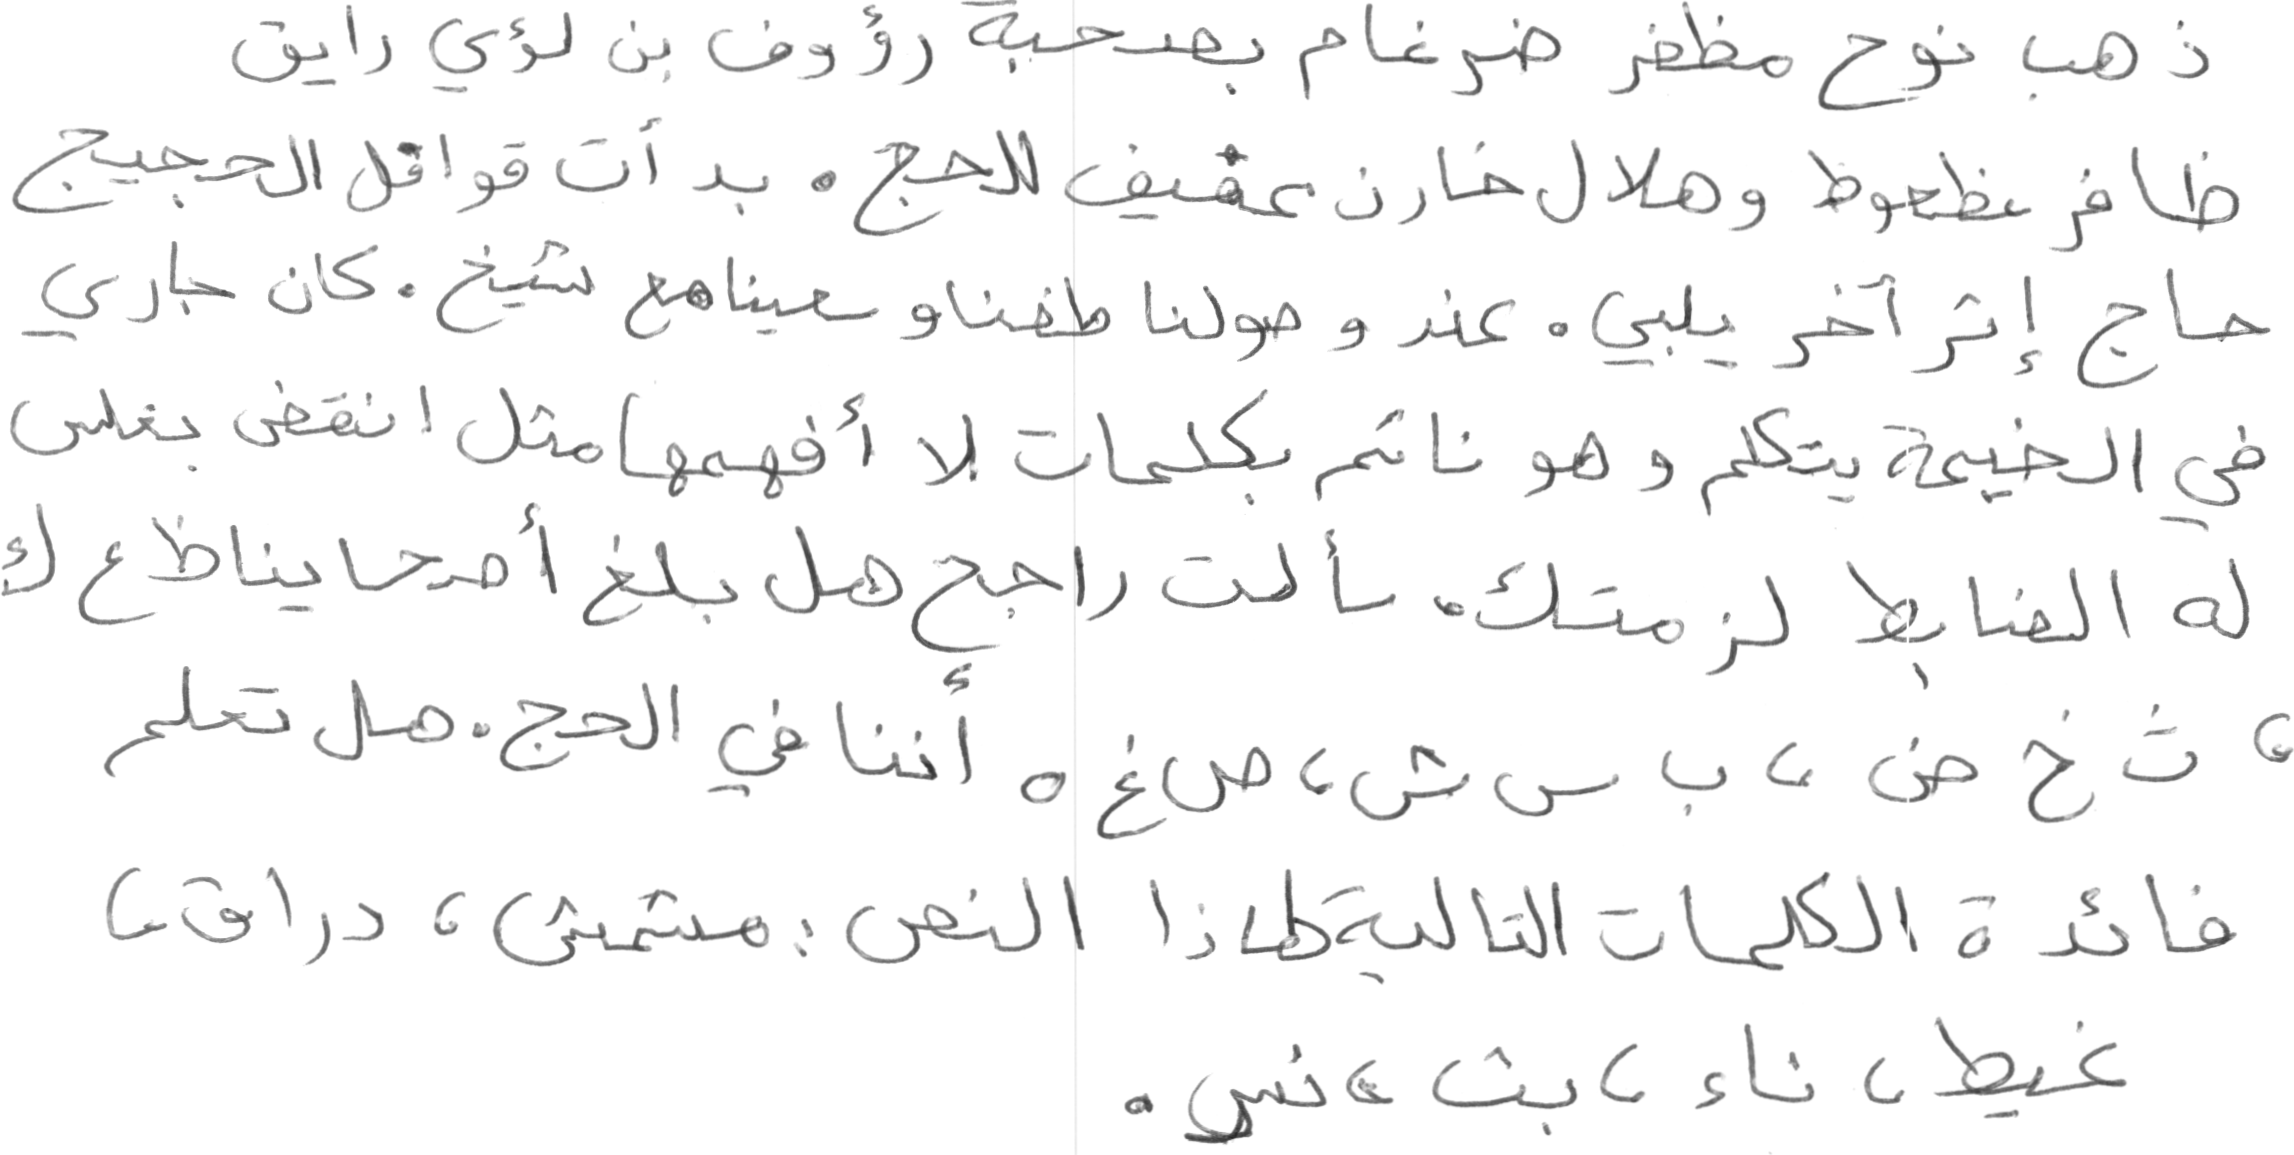 ذهب نوح مظفر ضرغام بصحبة رؤوف بن لؤي رايق
ظافر عظعوط وهلال خازن عفيف للحج. بدأت قوافل الحجيج
حاج إثر آخر يلبي. عند وصولنا طفنا وسعينا مع شيخ. كان جاري
في الخيمة يتكلم وهو نائم بكلمات لا أفهمها مثل انقض بغلس
له الضابط لزمتك. سألت راجح هل بلغ أصحابنا ظ ع ك
، ث خ ض، ب س ش، ص غ. أننا في الحج. هل تعلم
فائدة الكلمات التالية لهذا النص: مشمش، دراق،
غيط، ناء، بث، نس.